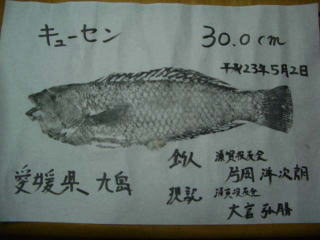 キューセン 30.0cm
平成23年5月2日
愛媛県 九島
釣人 須賀投友会
片岡 洋次朗
現認 須賀投友会
大宮 弘勝